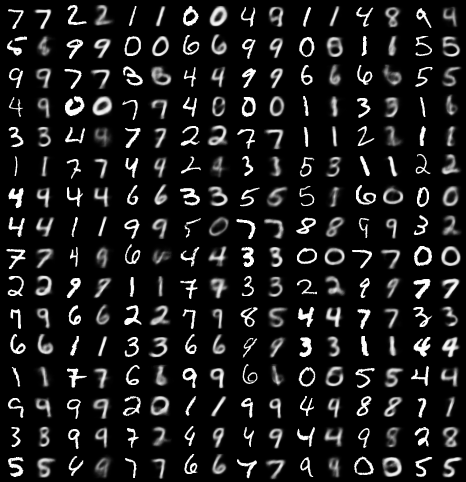 7 7 2 2 1 1 0 0 4 9 1 1 4 8 9 9
5 6 9 9 0 0 6 6 9 9 0 8 1 1 5 5
9 9 7 7 3 5 4 4 9 9 6 6 6 6 5 5
4 9 0 0 7 9 4 0 0 0 1 1 3 3 1 6
3 3 4 9 7 7 2 2 7 7 1 1 2 2 1 1
1 1 7 7 4 9 2 4 3 3 5 3 1 1 2 2
4 9 4 4 6 6 3 3 5 5 5 1 6 0 0 0
4 4 1 1 9 9 5 0 7 7 8 8 9 9 3 2
7 7 4 9 6 4 4 3 3 0 0 7 7 0 0
2 2 9 9 1 1 7 9 3 3 2 2 9 9 7 7
7 9 6 6 2 2 7 9 8 5 4 4 7 7 3 3
6 6 1 1 3 3 6 6 9 9 3 3 1 1 4 4
1 1 7 7 6 6 9 9 6 6 0 0 5 5 4 4
9 9 9 9 2 0 1 1 9 9 4 9 8 8 7 1
3 3 9 9 7 2 4 9 4 9 4 4 9 8 2 8
5 5 4 9 7 7 6 6 7 7 9 9 0 0 5 5